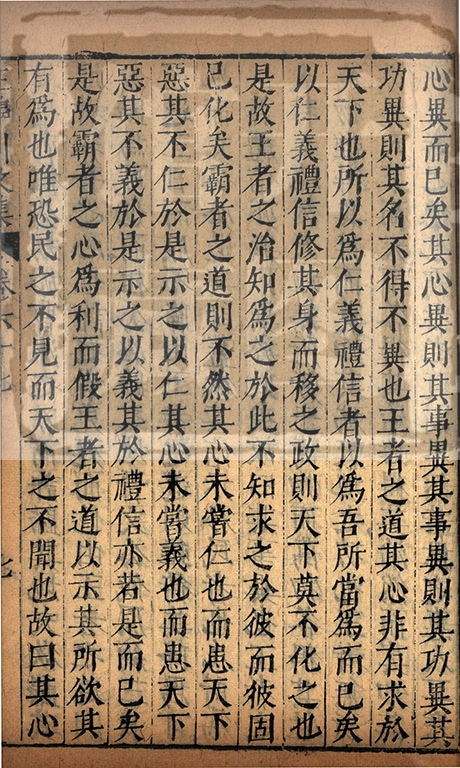 心異而已矣其心異則其事異其事異則其功異其
功異則其名不得不異也王者之道其心非有求於
天下也所以爲仁義禮信者以爲吾所當爲而已矣
以仁義禮信修其身而移之政則天下莫不化之也
是故王者之治知爲之於此不知求之於彼而彼固
已化矣霸者之道則不然其心未嘗仁也而患天下
惡其不仁於是示之以仁其心未嘗義也而患天下
惡其不義於是示之以義其於禮信亦若是而已矣
是故霸者之心爲利而假王者之道以示其所欲其
有爲也唯恐民之不見而天下之不聞也故曰其心
卷六十七
七